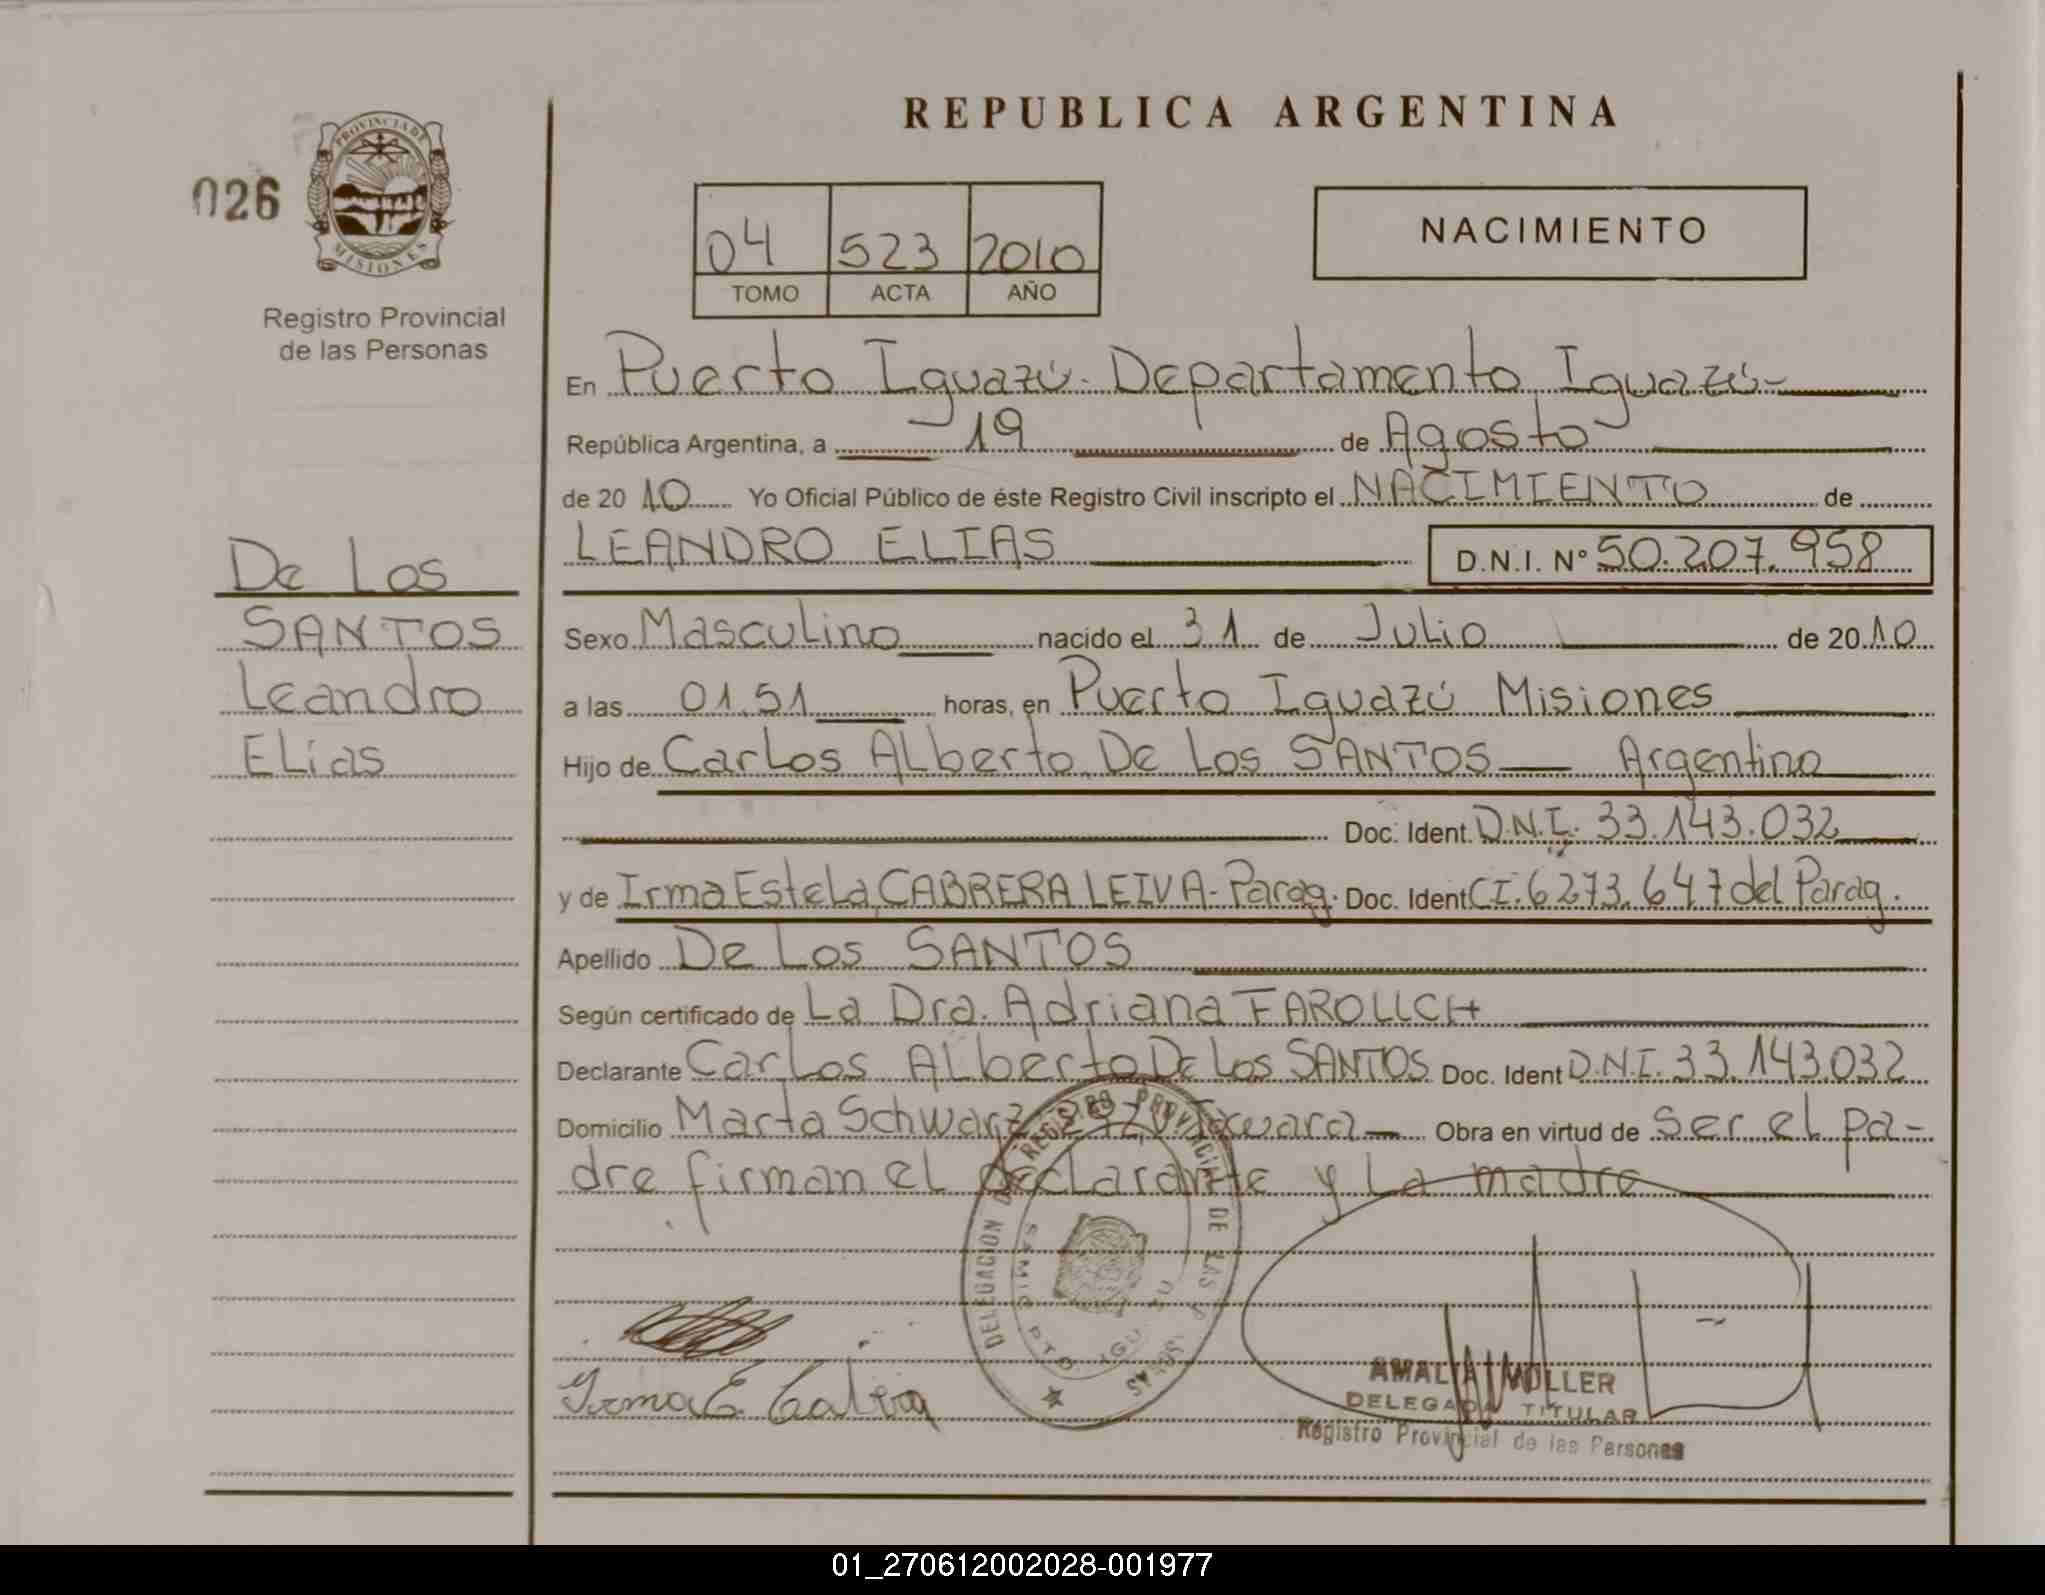 REPUBLICA ARGENTINA
026
PROVINCIA DE
MISIONES
Registro Provincial
de las Personas
04 523 2010
TOMO ACTA AÑO
NACIMIENTO
En Puerto Iguazú - Departamento Iguazú -
República Argentina, a 19 de Agosto
de 2010 Yo Oficial Público de éste Registro Civil inscripto el NACIMIENTO de
LEANDRO ELIAS D.N.I. Nº 50.207.958
De Los
SANTOS
Leandro
Elías
Sexo Masculino nacido el 31 de Julio de 2010
a las 01.51 horas, en Puerto Iguazú Misiones
Hijo de Carlos Alberto De Los SANTOS — Argentino
Doc. Ident. D.N.I. 33.143.032
y de Irma Estela CABRERA LEIVA - Parag. Doc. Ident C.I. 6273.647 del Parag.
Apellido De Los SANTOS
Según certificado de La Dra. Adriana
Declarante Carlos Alberto De Los SANTOS Doc. Ident D.N.I. 33.143.032
Domicilio Marta Schwarz Obra en virtud de ser el pa-
dre firman el declarante y La madre
DELEGACION DEL REGISTRO PROVINCIAL DE LAS PERSONAS
Irma E.
AMALIA MOLLER
DELEGADA TITULAR
Registro Provincial de las Personas
01_270612002028-001977